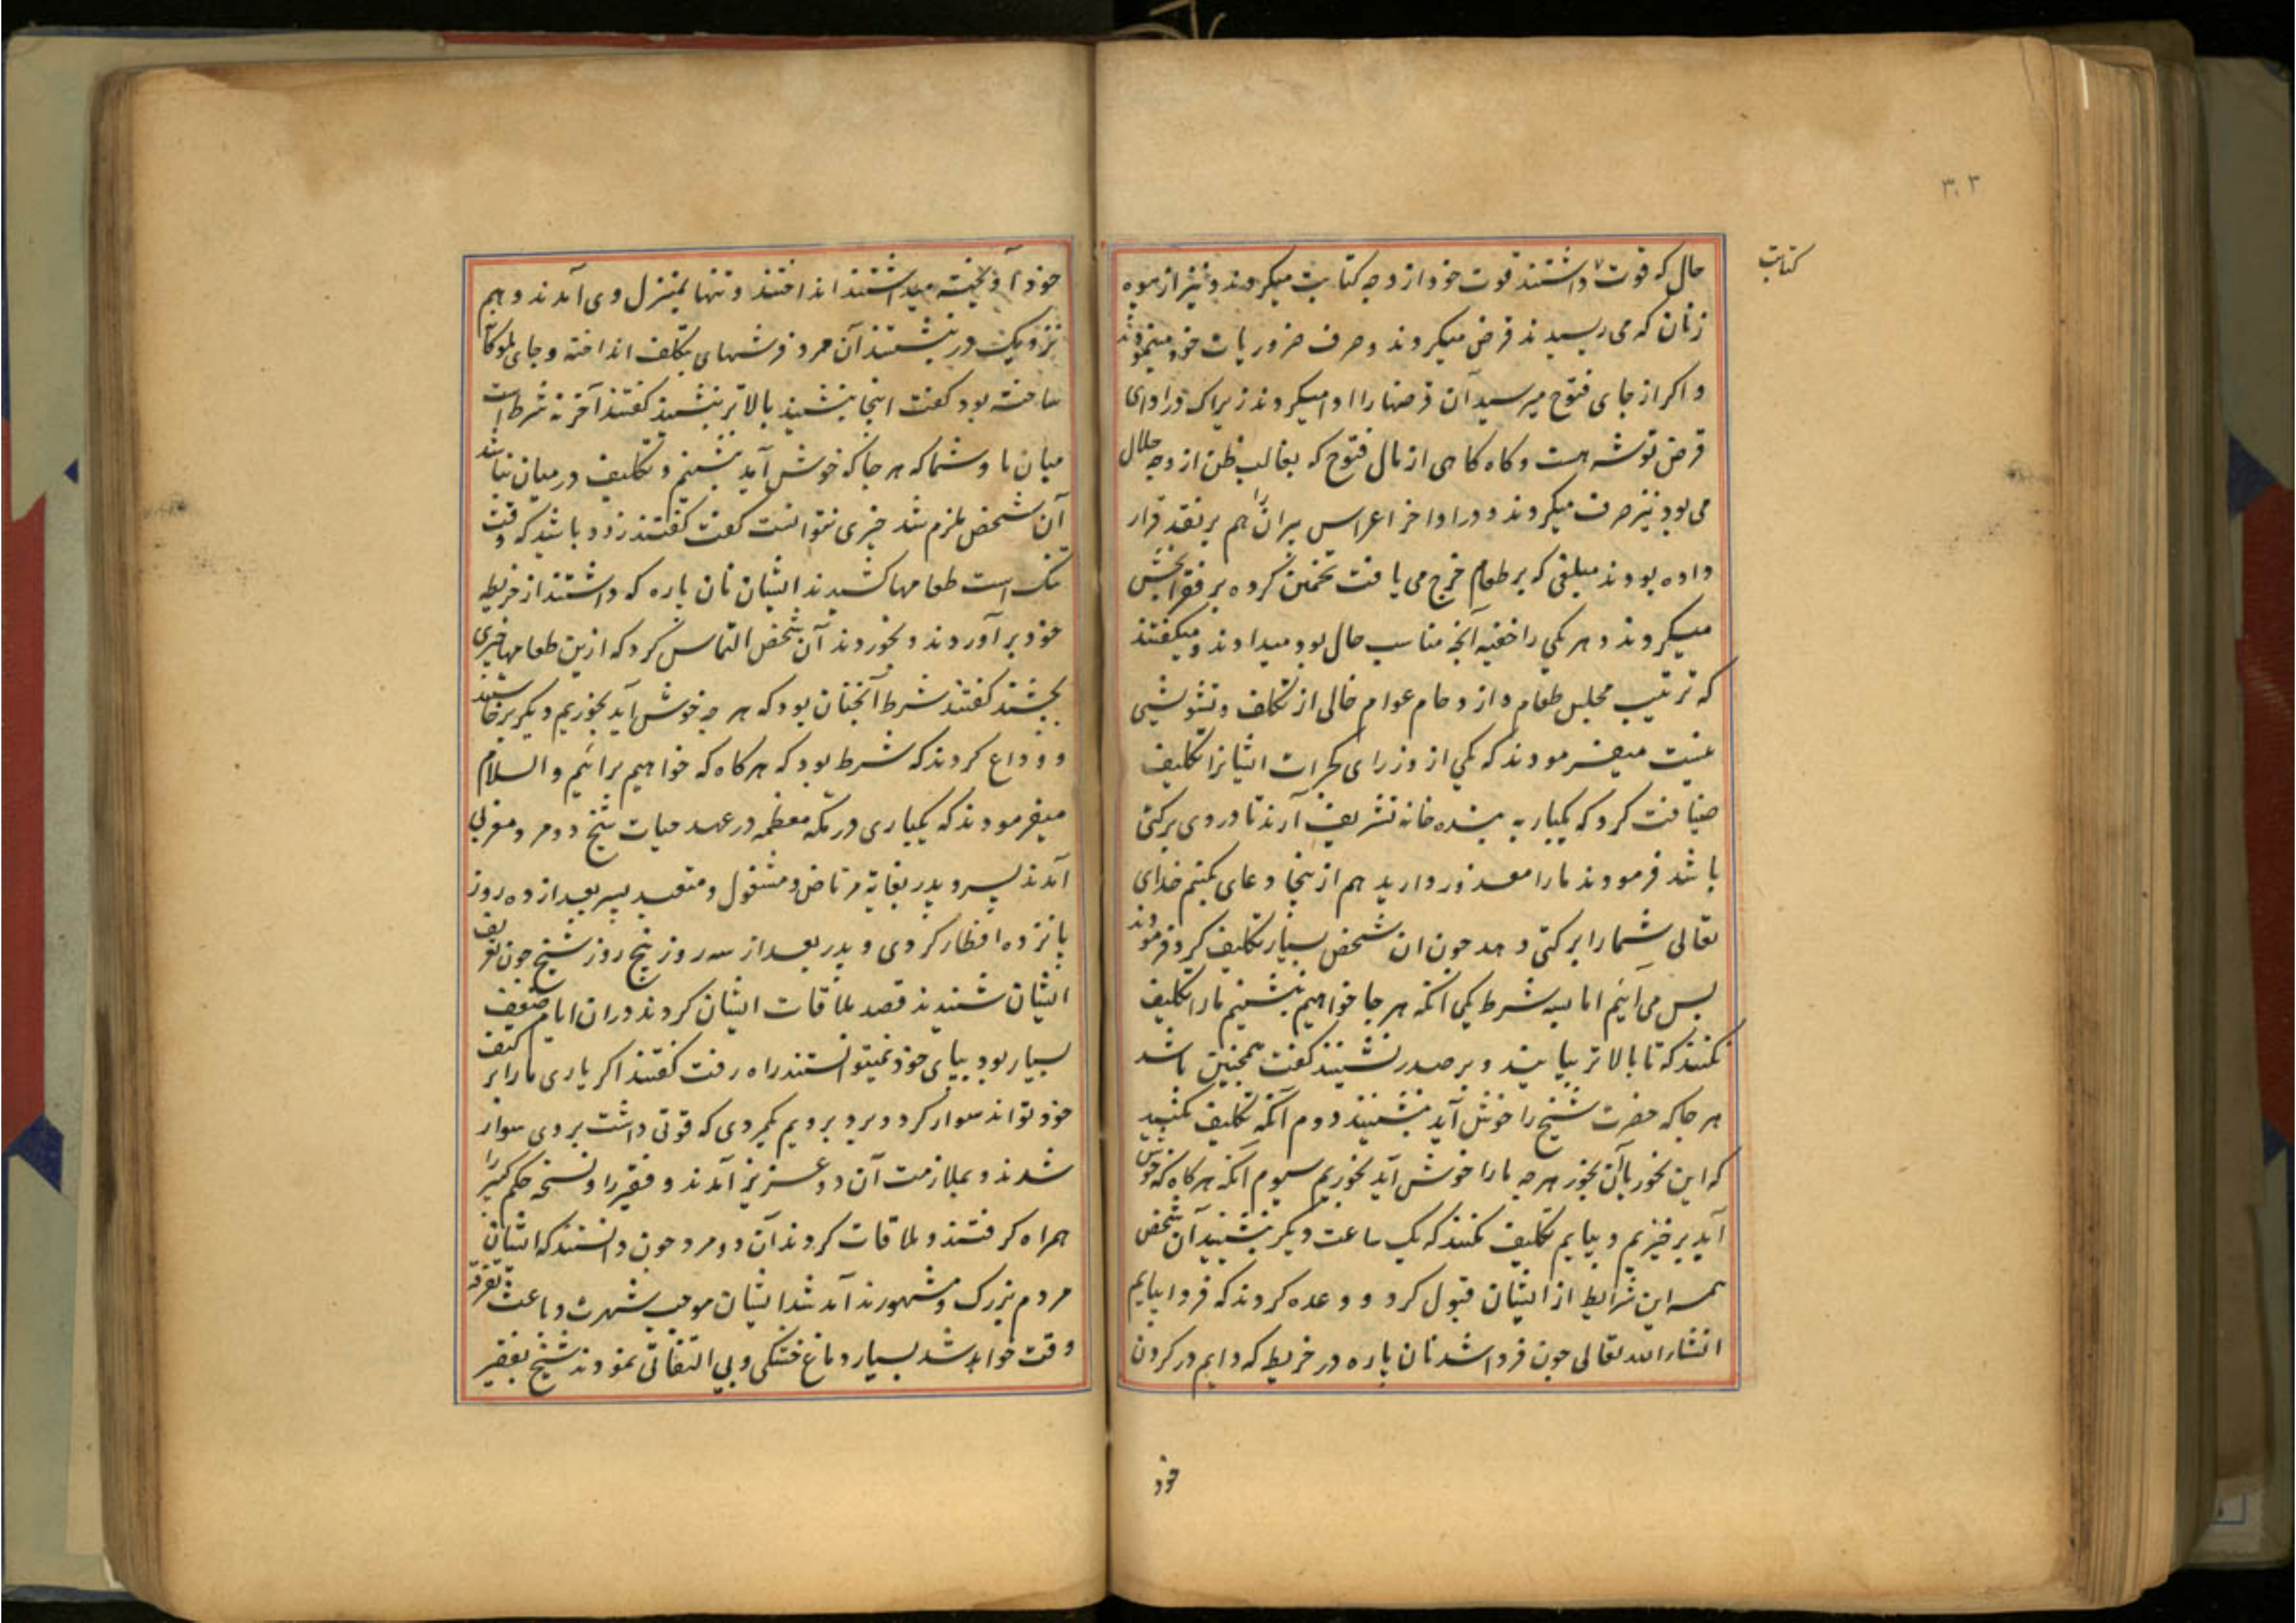 ۳۰۳
کتابت
حال که قوت داشتند قوت خود از وجه کتابت میکردند و نیز از میوه
زنان که می رسیدند قرض میکردند و صرف ضروریات خود مینمودند
و اکر از جای فتوح میرسید آن قرضها را ادا میکردند زیراک در ادای
قرض توشه است و کاه کاهی از مال فتوح که بغالب ظن از وجه حلال
می بود نیز صرف میکردند و در اواخر اعراس پیران را هم بر نقد قرار
داده بودند مبلغی که بر طعام خرج می یافت تخمین کرده بر فقرا بخش
میکردند و هر یکی را خفیه آنچه مناسب حال بود میدادند و میکفتند
که ترتیب مجلس طعام و ازدحام عوام خالی از تکلف و تشویشی
نیست میفرمودند که یکی از وزرای کجرات ایشانرا تکلیف
ضیافت کرد که یکبار به بنده خانه تشریف آرند تا در وی برکتی
باشد فرمودند ما را معذور دارید هم از ینجا دعای بکنیم خدای
تعالی شما را برکتی دهد چون ان شخص بسیار تکلیف کرد فرمودند
پس می آئیم اما بسه شرط یکی آنکه هر جا خواهیم بنشینیم ما را تکلیف
نکنند که تا بالاتر بیایند و بر صدر نشینند کفت همچنین باشد
هر جا که حضرت شیخ را خوش آید بنشینند دوم آنکه تکلیف نکنید
که این بخور یا آن بخور هر چه ما را خوش آید بخوریم سیوم آنکه هر کاه که خوش
آید برخیزیم و بیایم تکلیف نکنند که یک ساعت دیکر بنشینید آن شخص
همه این شرایط از ایشان قبول کرد و وعده کردند که فردا بیایم
انشاء الله تعالی چون فردا شد نان پاره در خریطه که دایم در کردن
خود
خود آویخته میداشتند انداختند و تنها بمنزل وی آمدند و هم
نزدیک در بنشستند آن مرد فرشهای بتکلف انداخته و جای ملوکانه
ساخته بود کفت اینجا بنشینید بالاتر بنشینید کفتند آخر نه شرط است
میان ما و شما که هر جا که خوش آید بنشینم و تکلیف در میان نباشد
آن شخص ملزم شد چیزی نتوانست کفت کفتند زود باشید که وقت
تنک است طعامها کشیدند ایشان نان پاره که داشتند از خریطه
خود بر آوردند و بخوردند آن شخص التماس کرد که ازین طعامها چیزی
بچشند کفتند شرط آنچنان بود که هر چه خوش آید بخوریم دیکر برخاستند
و وداع کردند که شرط بود که هر کاه که خواهیم برائیم والسلام
میفرمودند که یکباری در مکه معظمه در عهد حیات شیخ دو مرد مغربی
آمدند پسر و پدر بغایة مرتاض و مشغول و متعبد پسر بعد از ده روز
پانزده افطار کردی و پدر بعد از سه روز پنج روز شیخ چون تعریف
ایشان شنیدند قصد ملاقات ایشان کردند دران ایام ضعیف
بسیار بود بپای خود نمیتوانستند راه رفت کفتند اکر یاری ما را بر کتف
خود تواند سوار کرد و برد برویم یکمردی که قوتی داشت بر وی سوار
شدند و بملازمت آن دو عزیز آمدند و فقیر را و نسخه حکم کبیر را
همراه کرفتند و ملاقات کردند آن دو مرد چون دانستند که ایشان
مردم بزرک و مشهورند آمد شد ایشان موجب شهرت و باعث تفرقه
وقت خواهد شد بسیار دماغ خشکی و بی التفاتی نمودند شیخ بفقیر